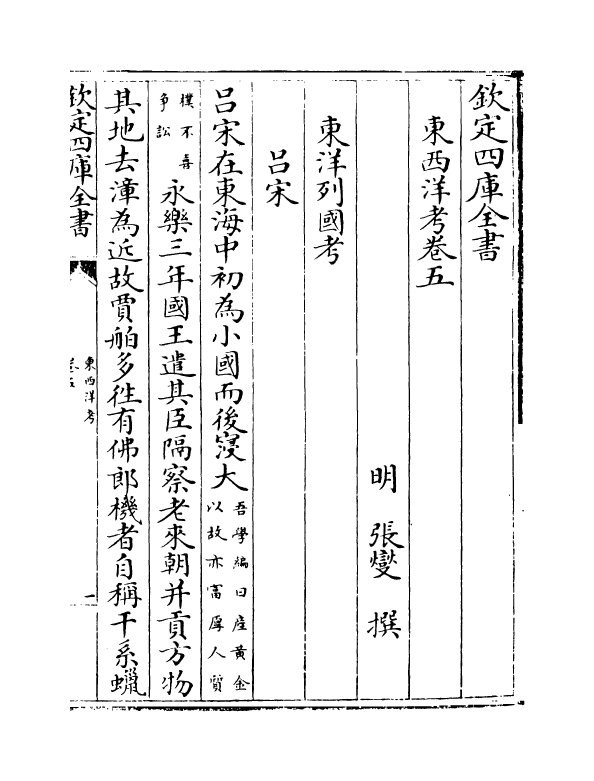 欽定四庫全書
東西洋考卷五
明 張燮 撰
東洋列國考
呂宋
呂宋在東海中初為小國而後寖大吾學編曰產黃金以故亦富厚人質
樸不喜爭訟永樂三年國王遣其臣隔察老來朝并貢方物
其地去漳為近故賈舶多徃有佛郎機者自稱干系蠟
欽定四庫全書
東西洋考
卷五
一